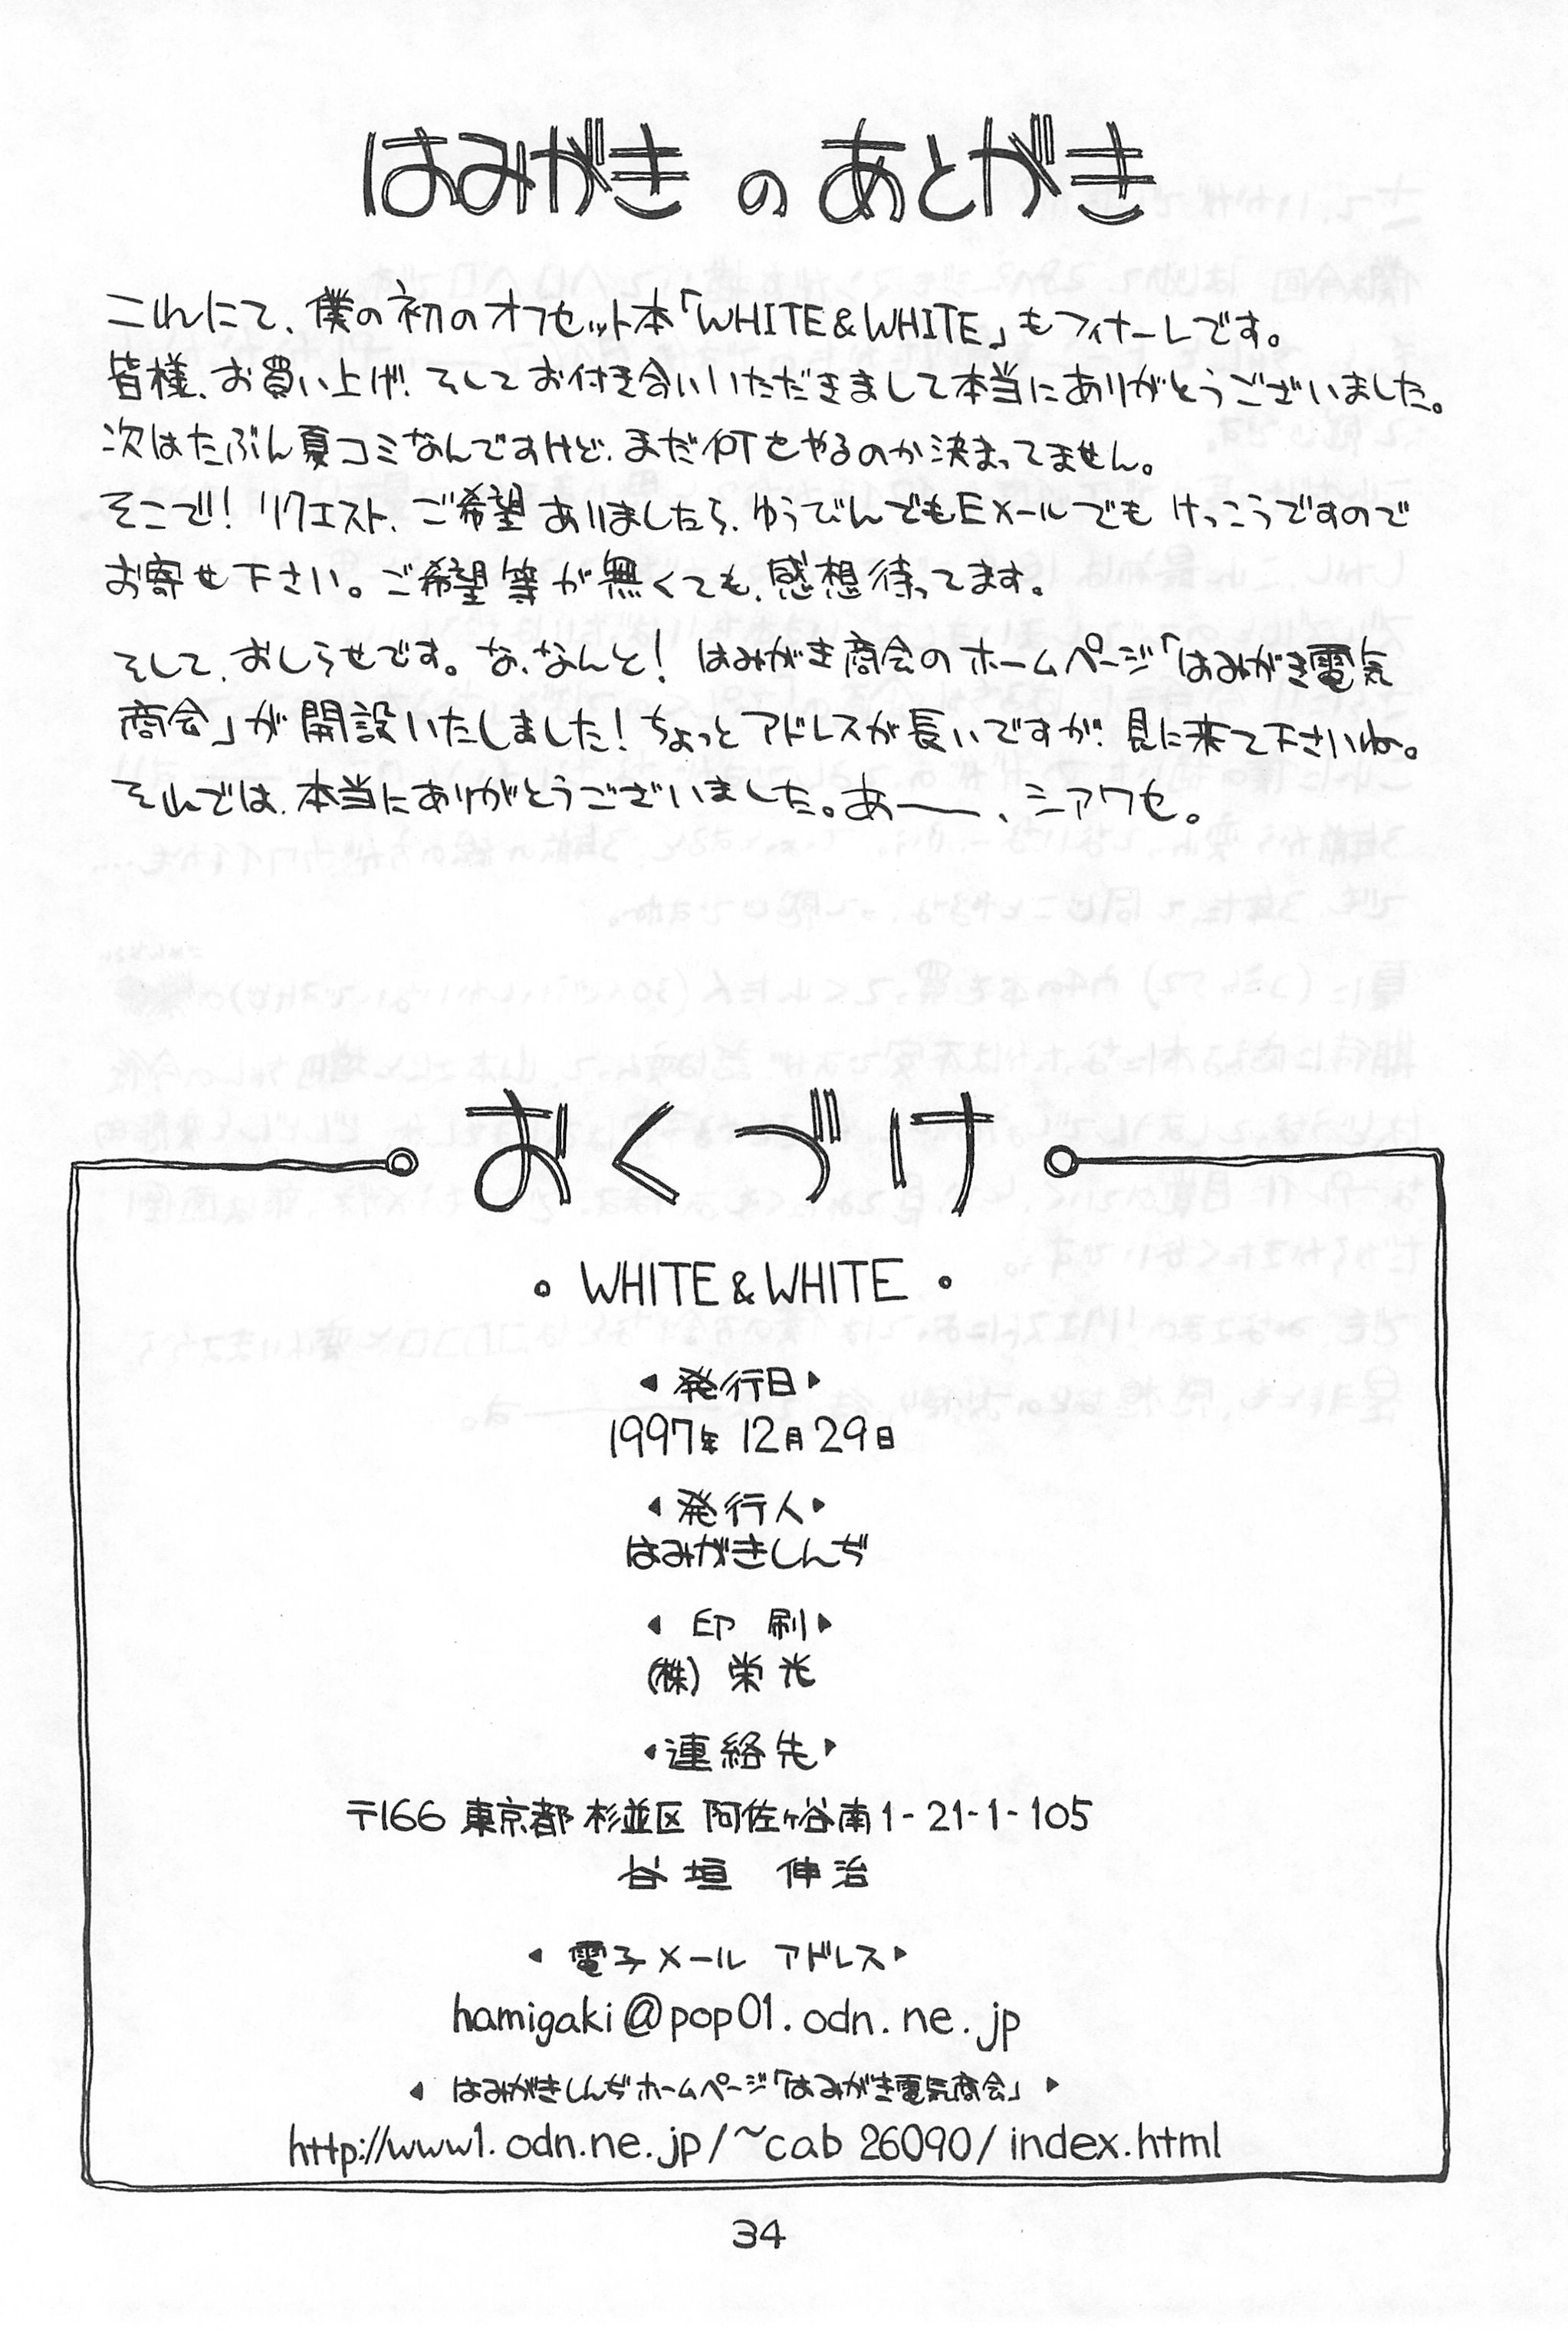 はみがきのあとがき
これにて、僕の初のオフセット本「WHITE&WHITE」もフィナーレです。
皆様、お買い上げ、そしてお付き合いいただきまして本当にありがとうございました。
次はたぶん夏コミなんですけど、まだ何をやるのか決まってません。
そこで！リクエスト、ご希望ありましたら、ゆうびんでもEメールでもけっこうですので
お寄せ下さい。ご希望等が無くても、感想待ってます。
そして、おしらせです。な、なんと！はみがき商会のホームページ「はみがき電気
商会」が開設いたしました！ちょっとアドレスが長いですが、見に来て下さいね。
それでは、本当にありがとうございました。あー――、シアワセ。
おくづけ
◦ WHITE&WHITE ◦
◂発行日▸
1997年12月29日
◂発行人▸
はみがきしんぢ
◂印刷▸
(株)栄光
◂連絡先▸
〒166 東京都杉並区阿佐ヶ谷南1-21-1-105
谷垣 伸治
◂電子メール アドレス▸
hamigaki@pop01.odn.ne.jp
◂はみがきしんぢホームページ「はみがき電気商会」▸
http://www1.odn.ne.jp/~cab26090/index.html
34